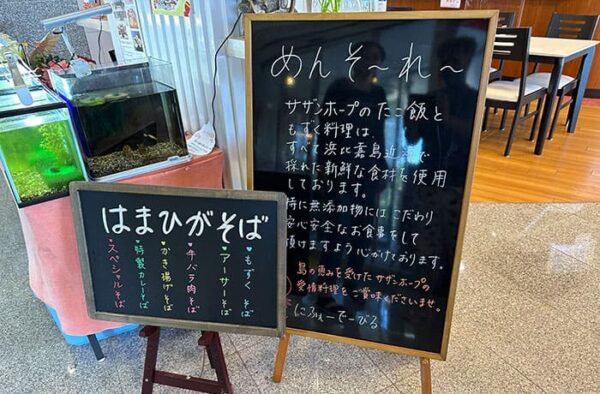 めんそ〜れ〜
サザンホープのたこ飯と
もずく料理は、
すべて浜比嘉島近海で
採れた新鮮な食材を使用
しております。
特に無添加物にはこだわり
安心安全なお食事をして
頂けますよう心がけております。
島の恵みを受けたサザンホープの
愛情料理をご賞味くださいませ。
にふぇーでーびる
はまひがそば
♥もずくそば
♥アーサーそば
♥牛バラ肉そば
♥かき揚げそば
♥特製カレーそば
♥スペシャルそば